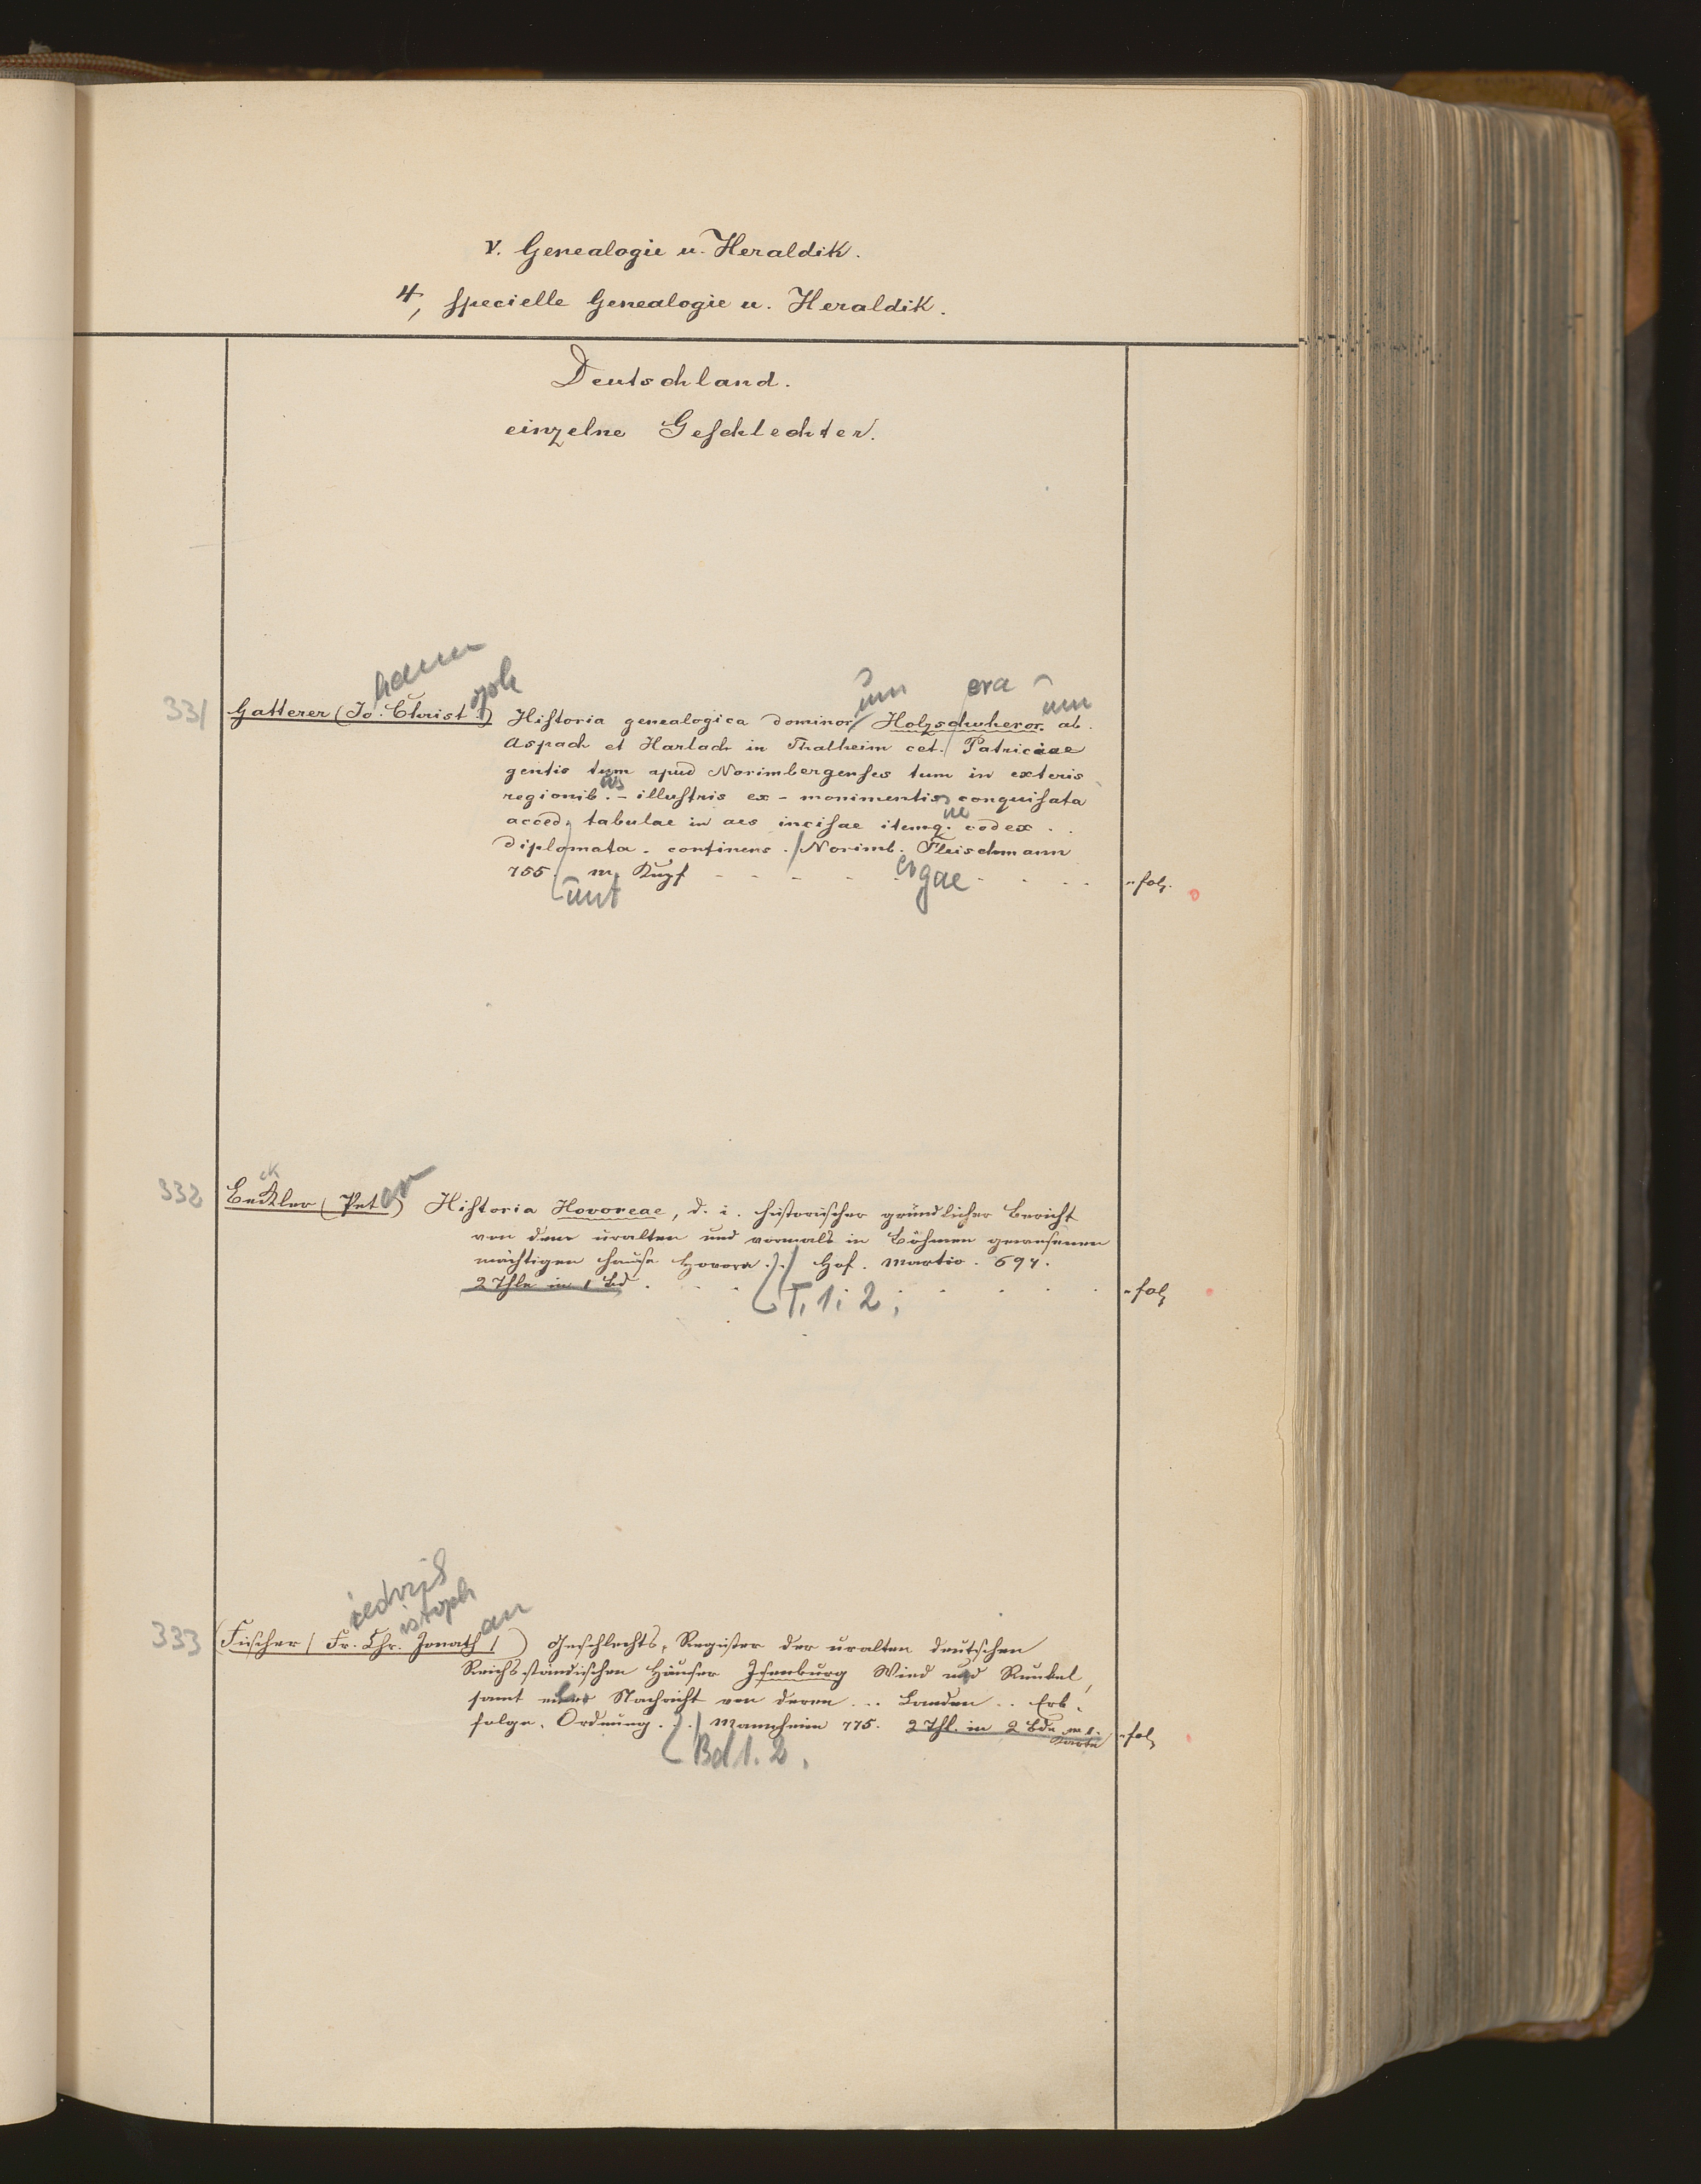 V. Genealogie u. Heraldik.
4, specielle Genealogie u. Heraldik.
Deutschland.
einzelne Geschlechter.
hann
oph um era um
331 Gatterer (Jo. Christ.) Historia genealogica dominor. Holzschuheror. ab.
Aspach et Harlach in Thalheim cet. Patriciae
gentis tum apud Norimbergenses tum in exteris
us
regionib. - illustris ex - monimentis conquisata
ue
acced. tabulae in aes incisae itemq. codex . .
diplomata . continens . / Norimb. Fleischmann
755. m. Kupf - - - - - - - . . . " fol.
unt ergae
ck er
332 Beckler (Pet.) Historia Hovorea, d. i. historischer gründlicher Bericht
von dem uralten und vormals in Böhmen gewesenen
mächtigen Hause Hovora . / Hof. Martio. 694.
2 Thle in 1 Bd . . . . . . . . " fol
T. 1. 2.
iedrich
istoph
an
333 (Fischer / Fr. Chr. Jonath /) Geschlechts, Register der uralten deutschen
Reichsständischen Häuser Isenburg Wied und Runkel,
samt einer Nachricht von deren .. Landen .. Erb,
folge, Ordnung. / Mannheim 775. 2 Thl. in 2 Bde m 1. " fol
Karte
Bd 1. 2.